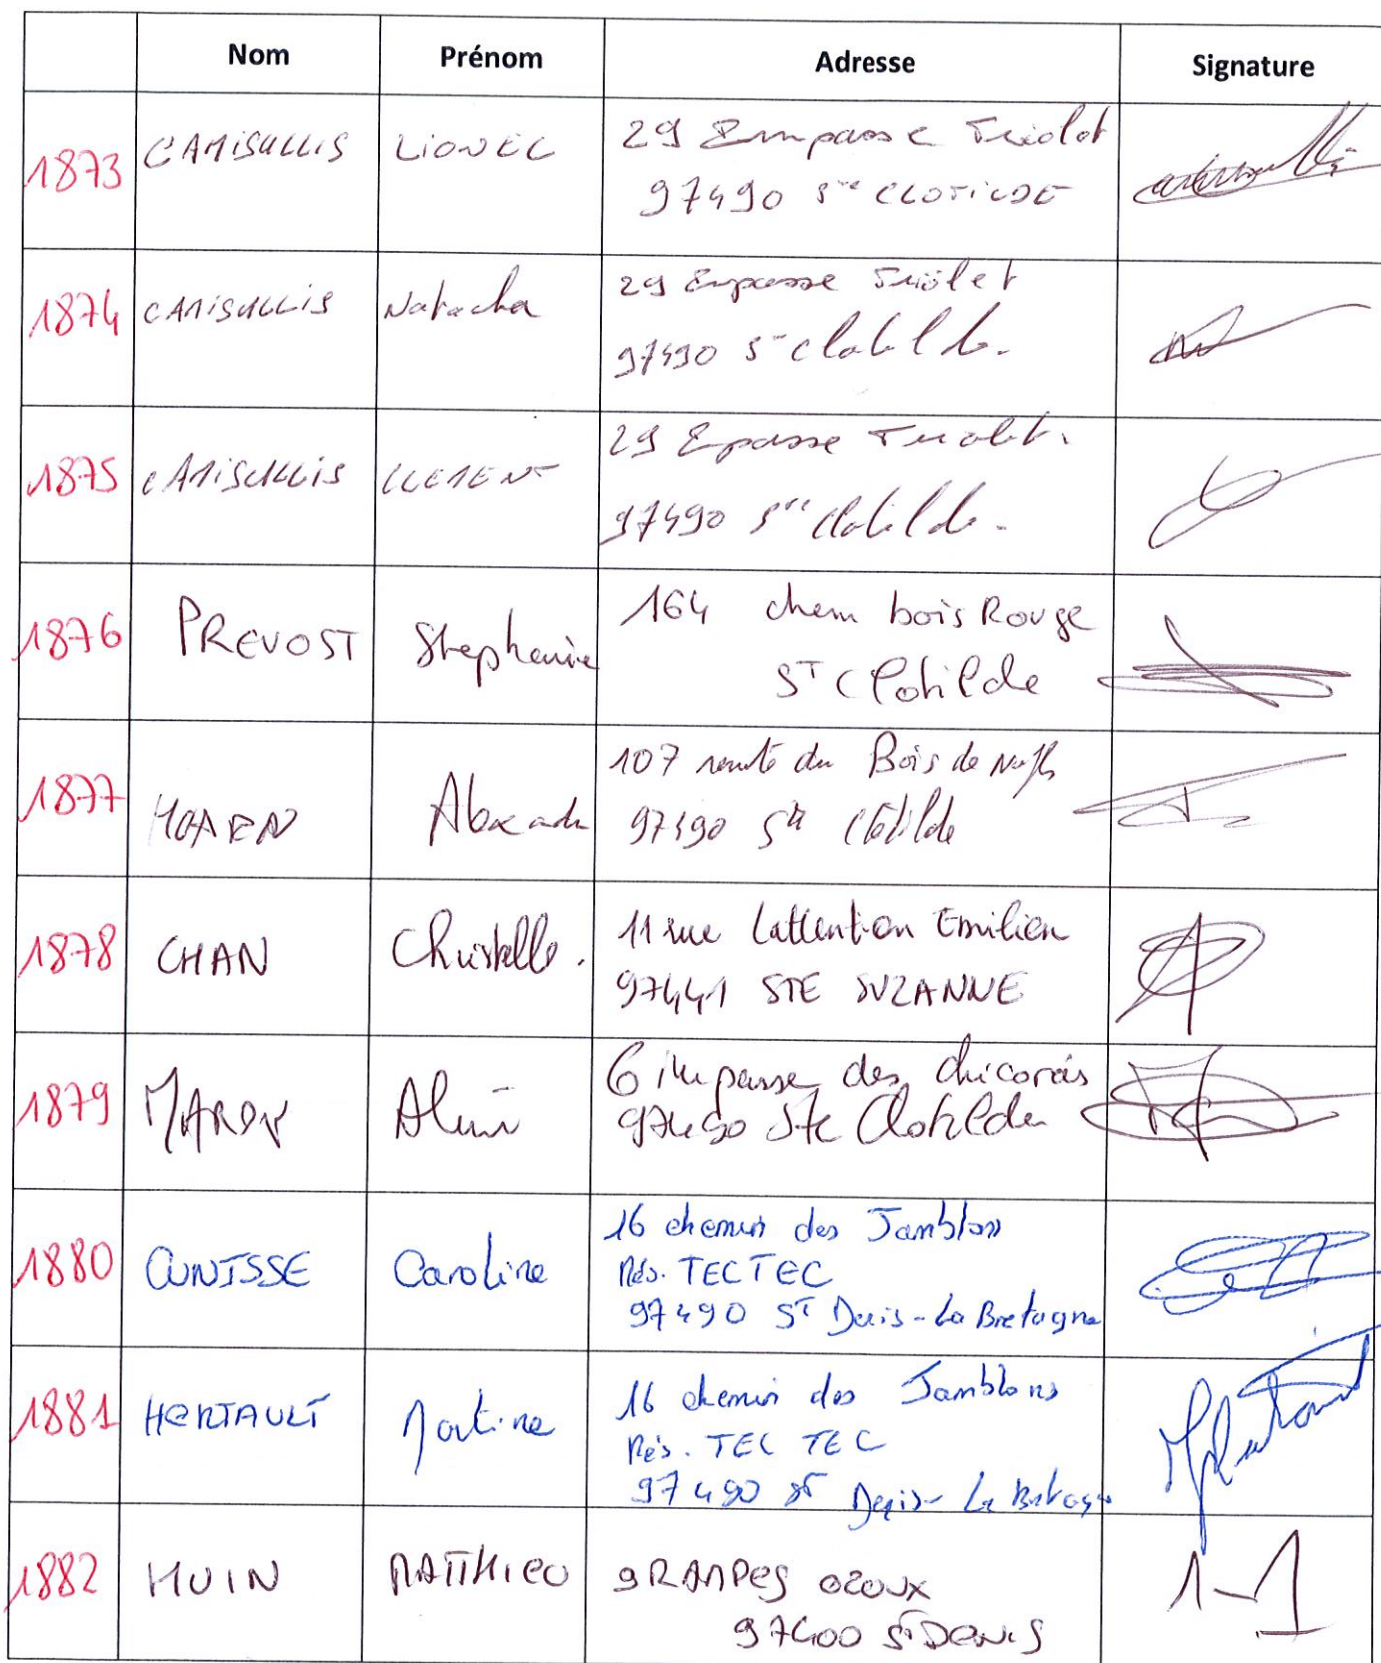 Nom Prénom Adresse Signature
1873 CAMISULLIS LIONEL 29 Empasse Triolet
97490 Ste CLOTILDE
1874 CAMISULLIS Natacha 29 Empasse Triolet
97490 Ste Clotilde.
1875 CAMISULLIS CLEMENT 29 Epasse Triolet.
97490 Ste Clotilde.
1876 PREVOST Stephanie 164 chem bois Rouge
ST Clotilde
1877 107 route du Bois de
97490 Ste Clotilde
1878 CHAN Christelle. 11 rue Lattention Emilien
97441 STE SUZANNE
1879 6 impasse des chicorées
97490 Ste Clotilde
1880 CUNISSE Caroline 16 chemin des Jamblons
Rés. TECTEC
97490 ST Denis-La Bretagne
1881 HERTAULT Martine 16 chemin des Jamblons
Rés. TEC TEC
97490 ST Denis-La Bretagne
1882 HUIN MATTHIEU 9 RAMPES OZOUX
97400 ST DENIS